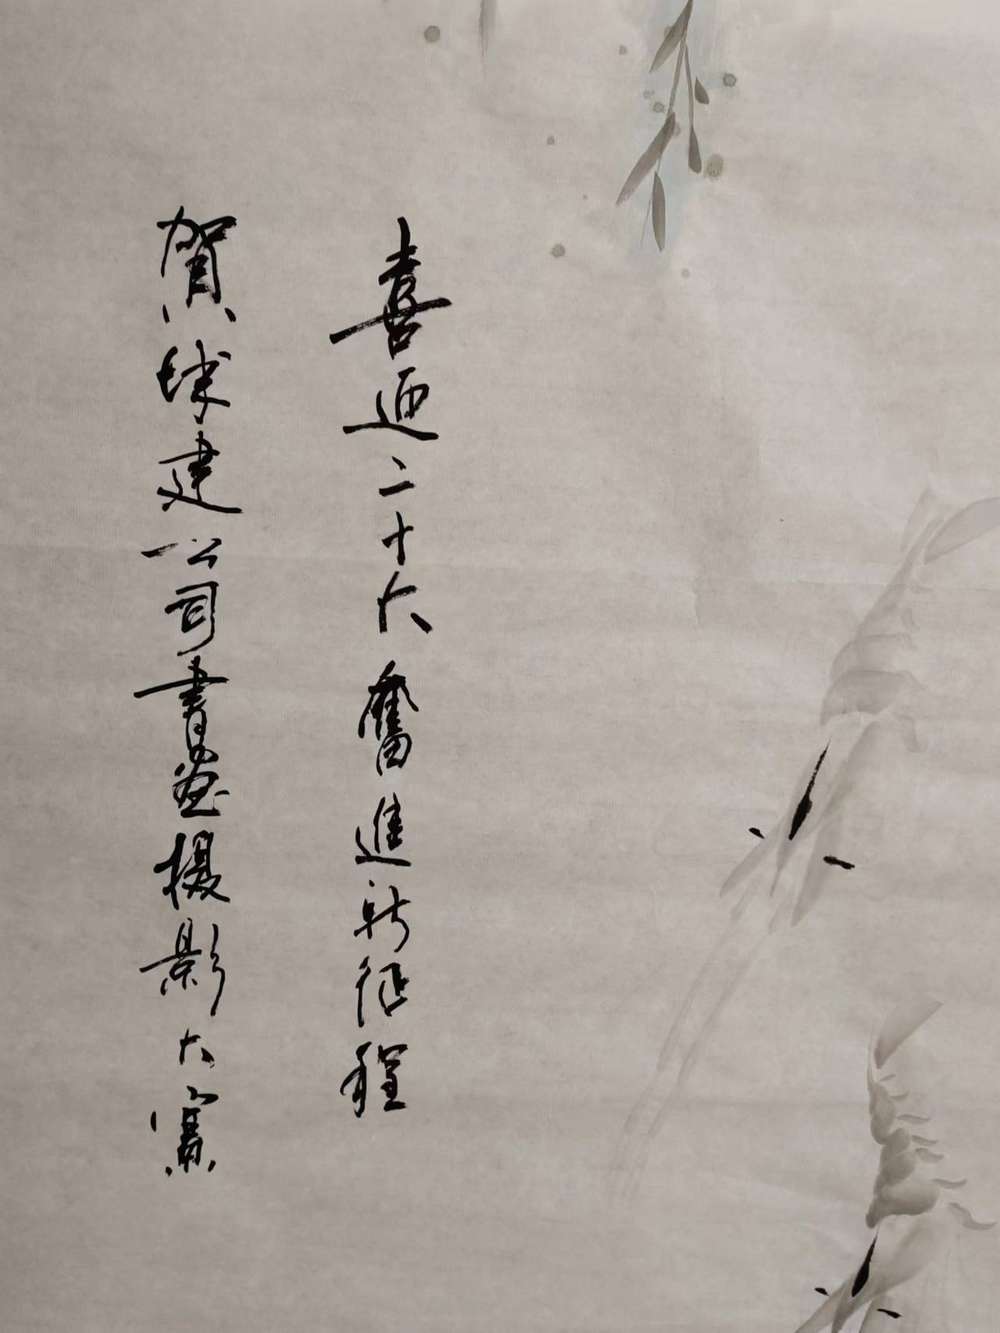 喜迎二十大奮進新征程
賀球建公司書画摄影大賽